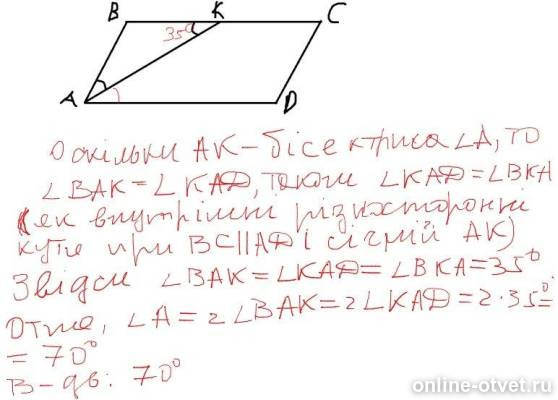 B K C
35°
A D
Оскільки AK – бісектриса ∠A, то
∠BAK = ∠KAD, також ∠KAD = ∠BKA
(як внутрішні різносторонні
кути при BC || AD і січній AK)
Звідси ∠BAK = ∠KAD = ∠BKA = 35°.
Отже, ∠A = 2∠BAK = 2∠KAD = 2·35° =
= 70°
В-дь: 70°
online-otvet.ru